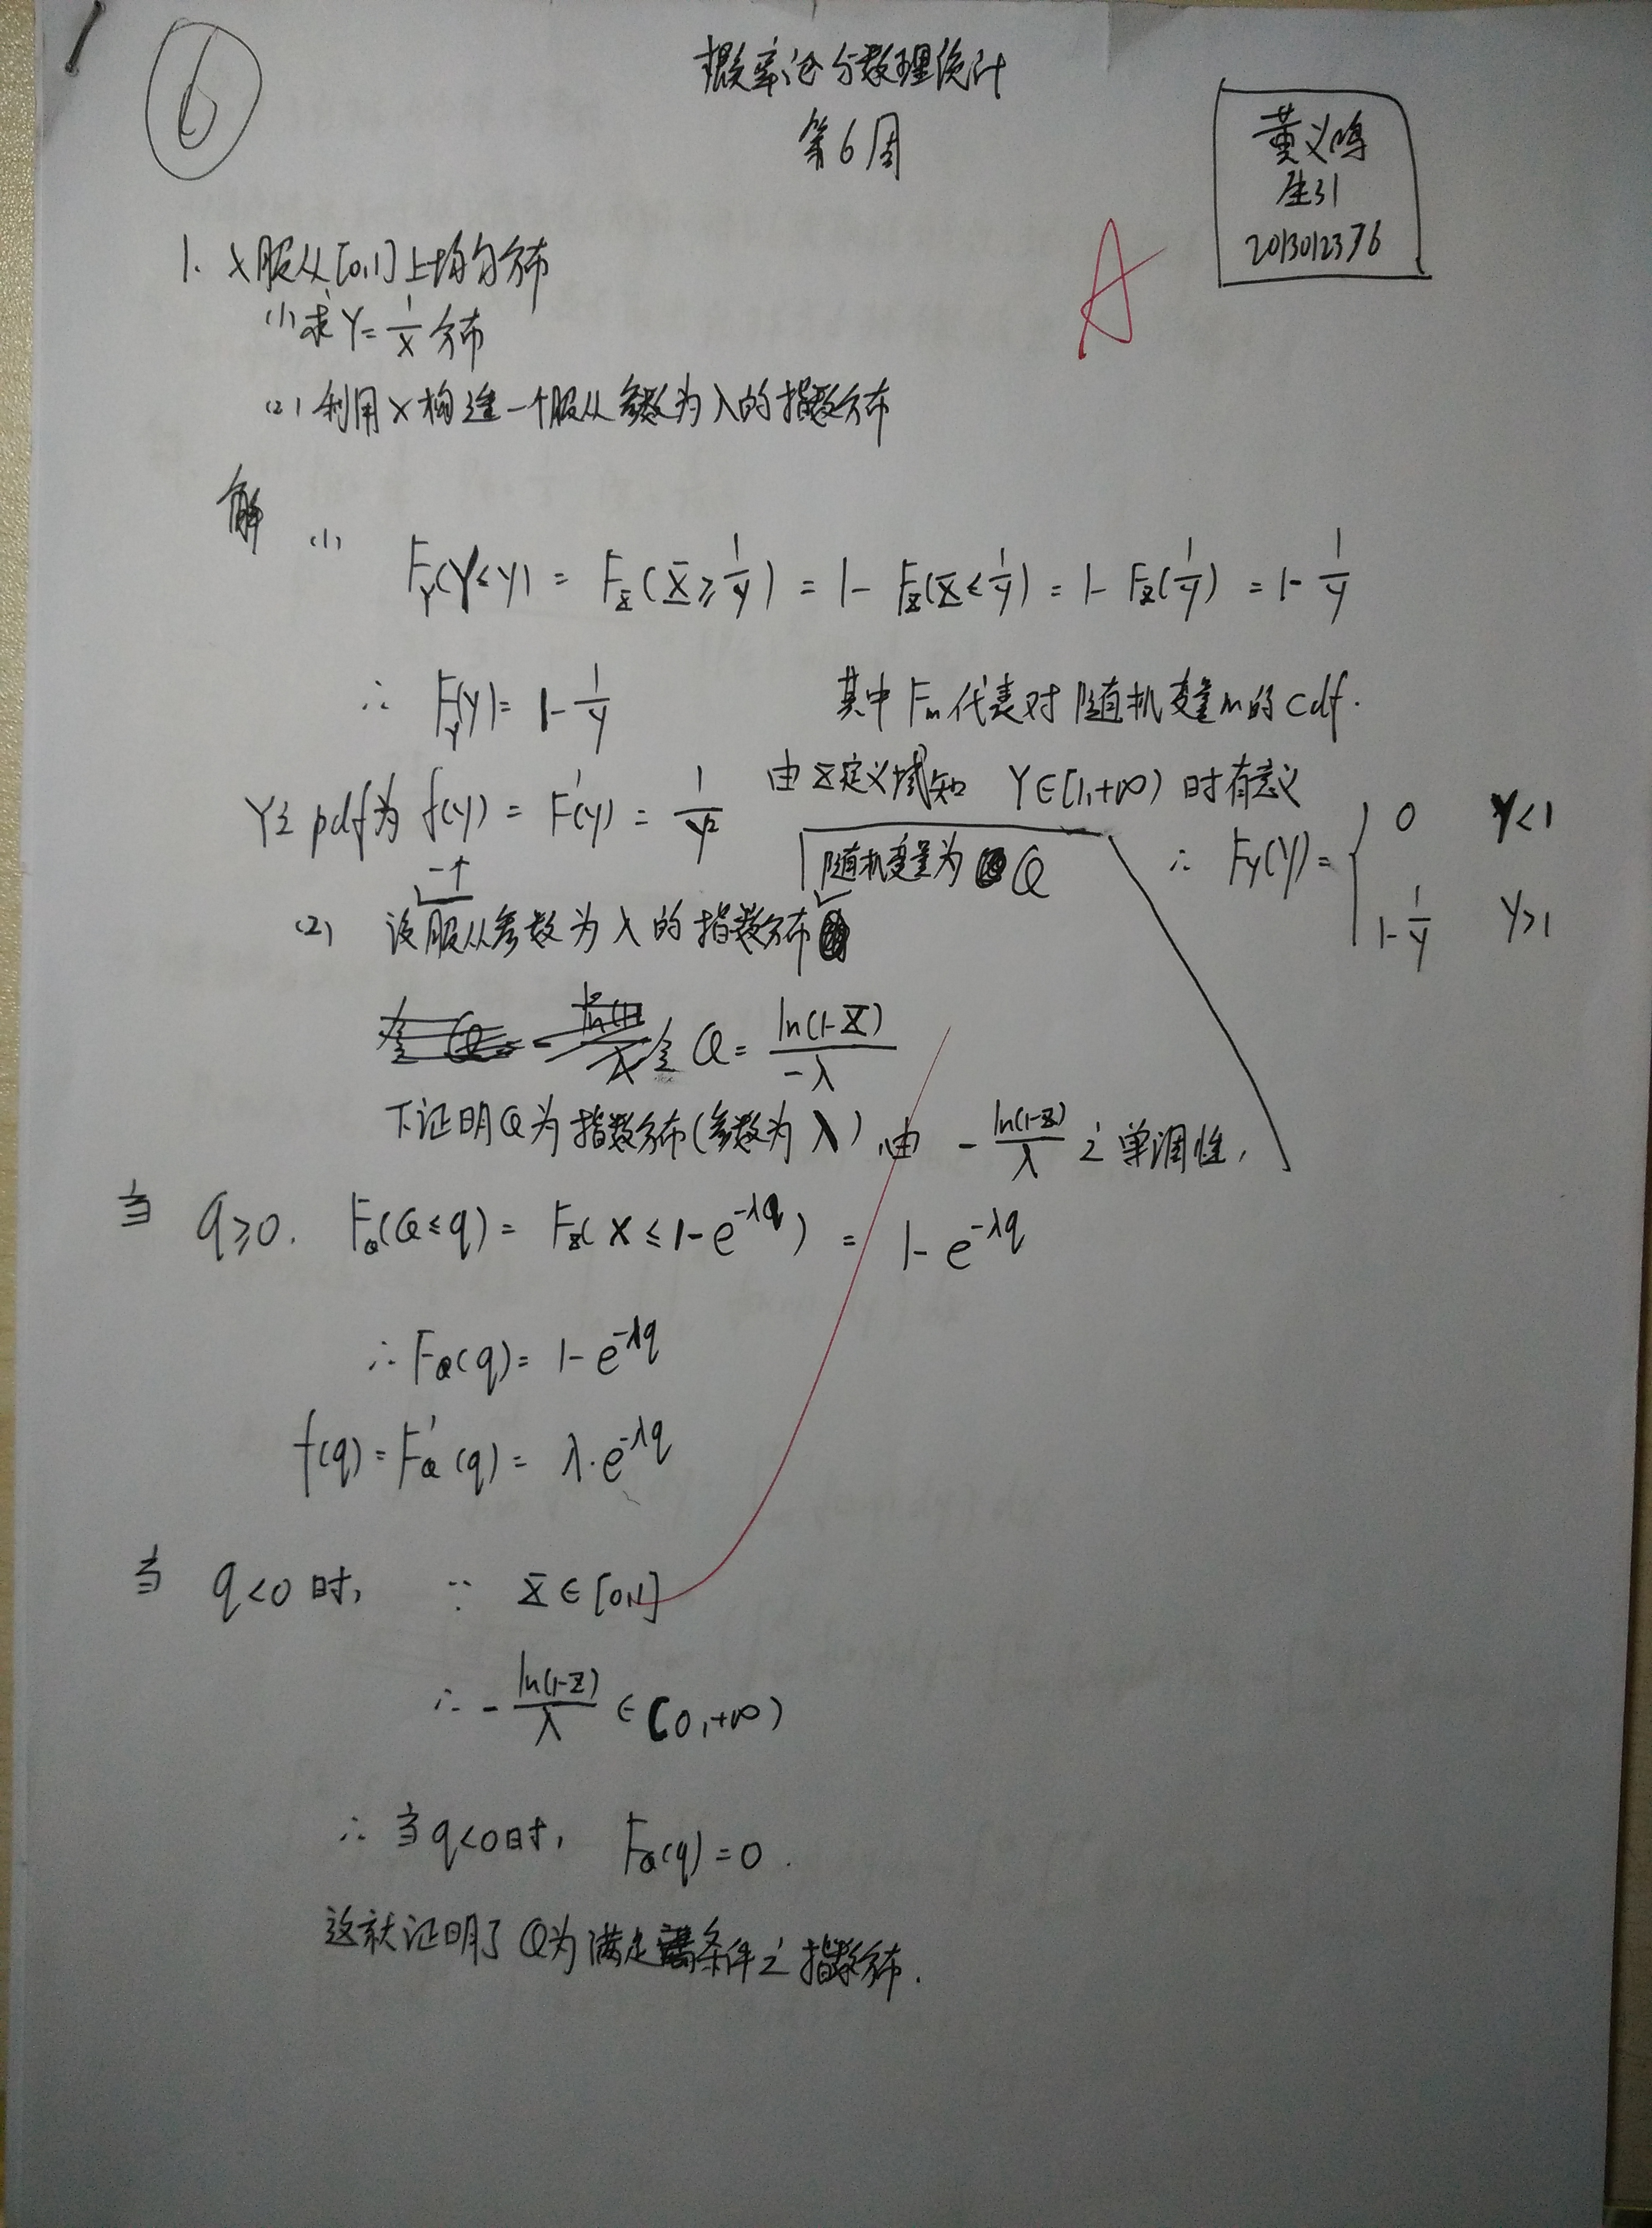 6
概率论与数理统计
第6周
董义鸣
生31
2013012376
A
1. X服从[0,1]上均匀分布
(1)求Y=1/X分布
(2)利用X构造一个服从参数为λ的指数分布
解 (1) F_Y(Y≤y) = F_X(X≥1/y) = 1-F_X(X≤1/y) = 1-F_X(1/y) = 1-1/y
∴ F_Y(y)=1-1/y 其中F_m代表对随机变量m的cdf.
由X定义域知 Y∈[1,+∞)时有意义
Y之pdf为f(y) = F'(y) = 1/y²
∴ F_Y(y)= { 0 Y<1
1-1/y Y>1
(2) 设一个服从参数为λ的指数分布随机变量为Q
令 Q= ln(1-X)/-λ
下证明Q为指数分布(参数为λ) 由 -ln(1-X)/λ 之单调性,
当 q≥0. F_Q(Q≤q) = F_X(X≤1-e^{-λq}) = 1-e^{-λq}
∴F_Q(q)= 1-e^{-λq}
f(q)=F_Q'(q)= λ·e^{-λq}
当 q<0时, ∵ X∈[0,1]
∴ -ln(1-X)/λ ∈[0,+∞)
∴ 当q<0时, F_Q(q)=0.
这就证明了Q为满足条件之指数分布.